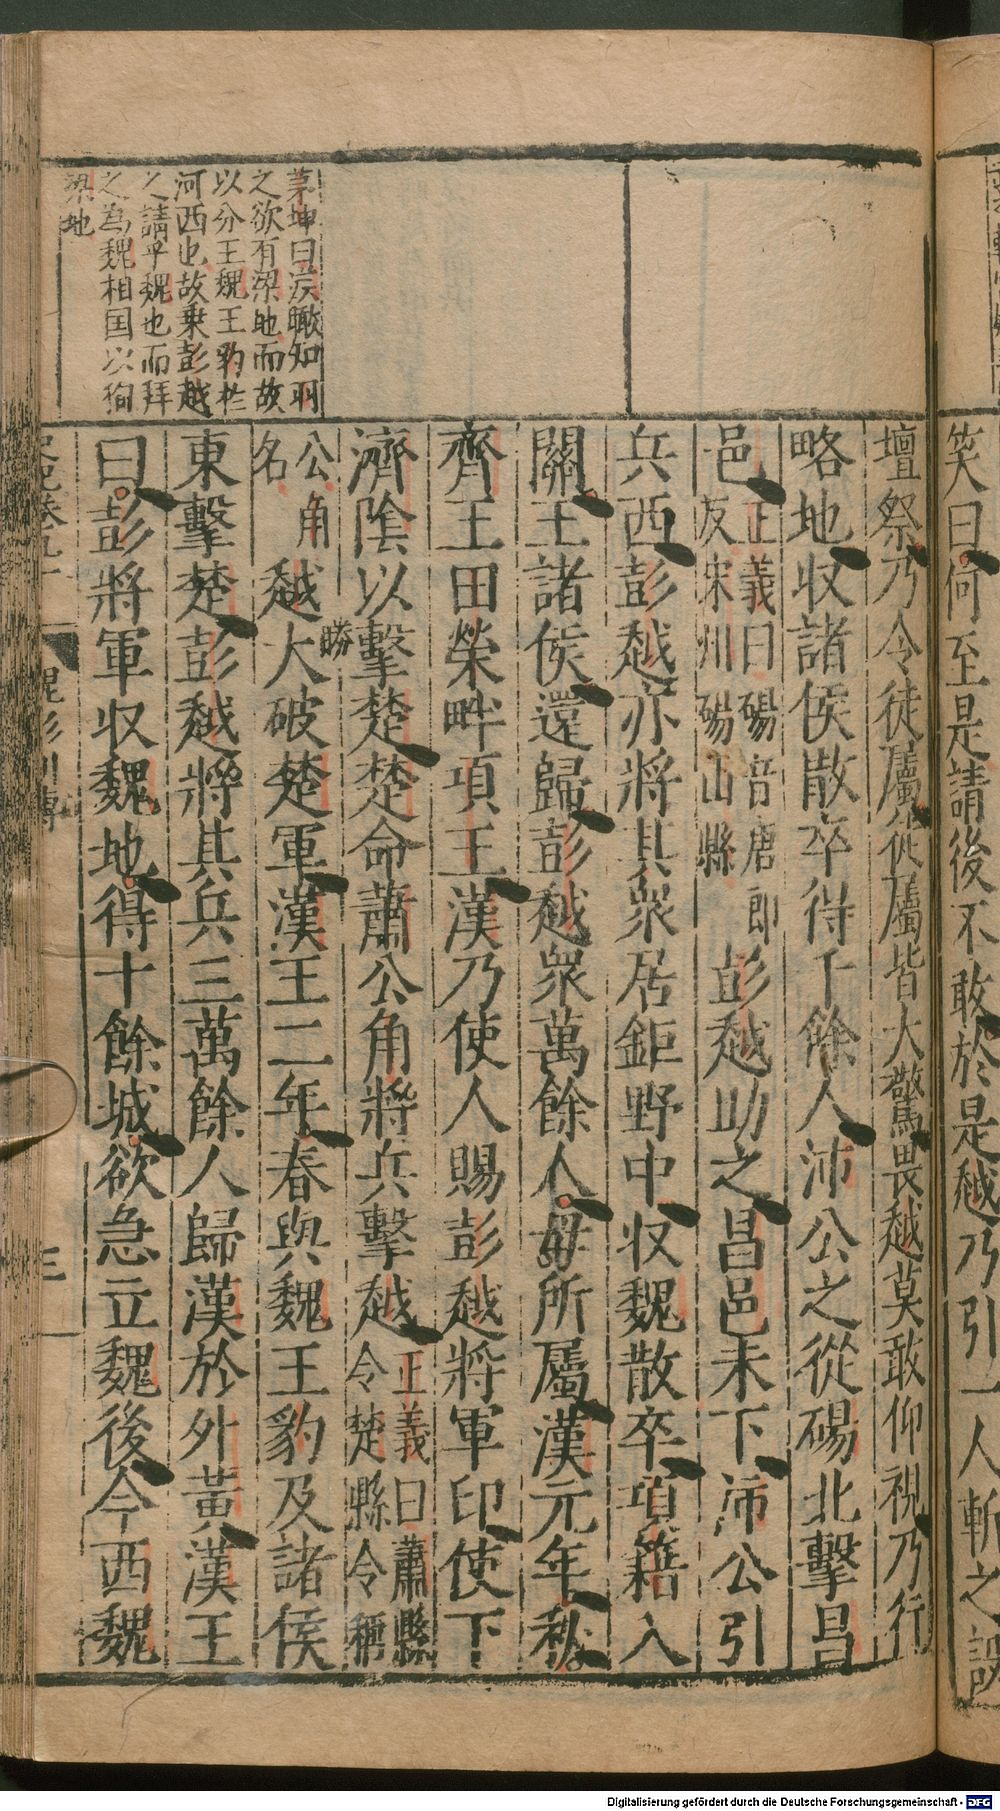 笑曰何至是請後不敢於是越乃引一人斬之設
壇祭乃令徒屬徒屬皆大驚畏越莫敢仰視乃行
略地收諸侯散卒得千餘人沛公之從碭北擊昌
邑正義曰碭音唐郎反宋州碭山縣彭越助之昌邑未下沛公引
兵西彭越亦將其眾居鉅野中收魏散卒項籍入
關王諸侯還歸彭越眾萬餘人毋所屬漢元年秋
齊王田榮畔項王漢乃使人賜彭越將軍印使下
濟陰以擊楚楚命蕭公角將兵擊越正義曰蕭縣令楚縣令稱
公角名越大破楚軍漢王二年春與魏王豹及諸侯
勝
東擊楚彭越將其兵三萬餘人歸漢於外黃漢王
曰彭將軍收魏地得十餘城欲急立魏後今西魏
茅坤曰漢瞰知羽
之欲有梁地而故
以分王魏王豹於
河西也故乘彭越
之請乎魏也而拜
之為魏相国以狥
梁地
三
Digitalisierung gefördert durch die Deutsche Forschungsgemeinschaft - DFG